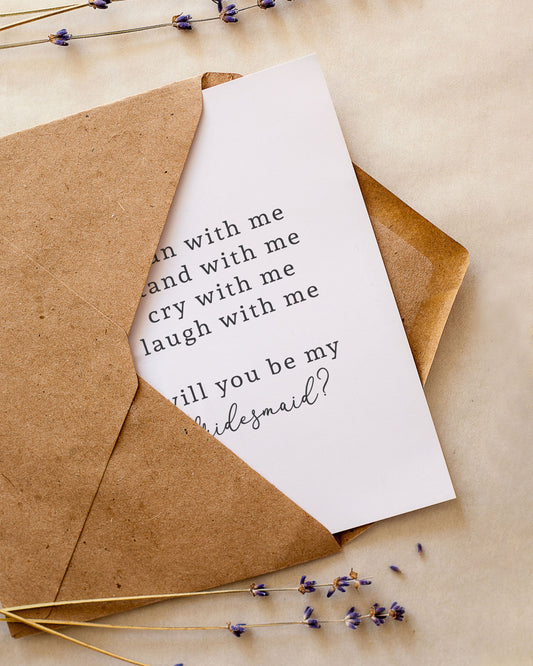 with me
with me
cry with me
laugh with me
you be my
bridesmaid?